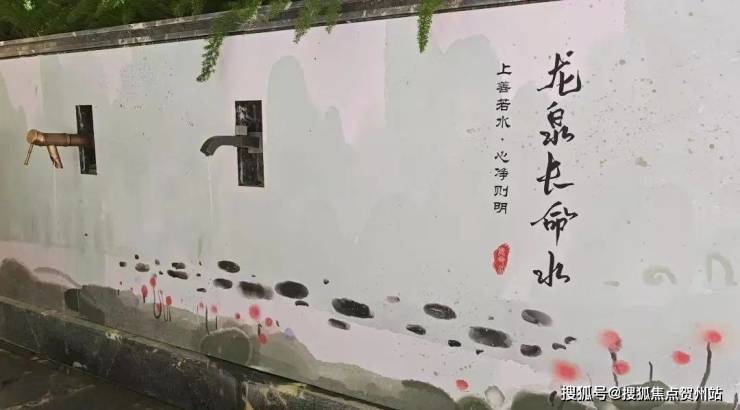 龙泉长命水
上善若水·心净则明
搜狐号@搜狐焦点贺州站